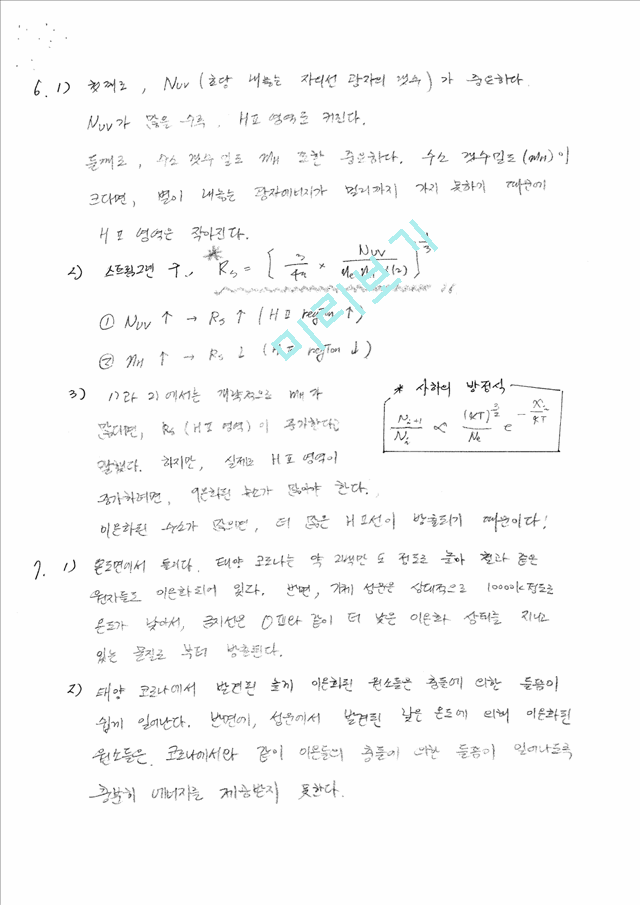 6. 1) 첫째로, Nuv (초당 내놓는 자외선 광자의 갯수)가 중요하다.
Nuv가 많을수록, HⅡ 영역은 커진다.
둘째로, 수소 갯수밀도 nH 또한 중요하다. 수소 갯수밀도(nH)이
크다면, 별이 내놓는 광자에너지가 멀리까지 가지 못하기 때문에
HⅡ 영역은 작아진다.
2) 스트룀그렌 구, * Rs = [ 3/4π × Nuv / ne nH α(2) ]^1/3
① Nuv ↑ → Rs ↑ (HⅡ region ↑)
② nH ↑ → Rs ↓ (HⅡ region ↓)
3) 1)과 2)에서는 개략적으로 nH가
많다면, Rs (HⅡ 영역)이 증가한다고
말했다. 하지만, 실제로 HⅡ 영역이
증가하려면, 이온화된 수소가 많아야 한다.
이온화된 수소가 많으면, 더 많은 HⅡ선이 방출되기 때문이다!
* 사하의 방정식
Ni+1/Ni ∝ (kT)^3/2 / Ne e^-χi/kT
7. 1) 온도면에서 틀리다. 태양 코로나는 약 2백만 도 정도로 높아 철과 같은
원자들도 이온화되어 있다. 반면, 가스 성운은 상대적으로 10000K정도로
온도가 낮아서, 금지선은 OⅢ와 같이 더 낮은 이온화 상태를 지니고
있는 물질로 부터 방출된다.
2) 태양 코로나에서 발견된 높게 이온화된 원소들은 충돌에 의한 들뜸이
쉽게 일어난다. 반면에, 성운에서 발견된 낮은 온도에 의해 이온화된
원소들은 코로나에서와 같이 이온들의 충돌에 의한 들뜸이 일어나도록
충분히 에너지를 제공받지 못한다.
미리보기